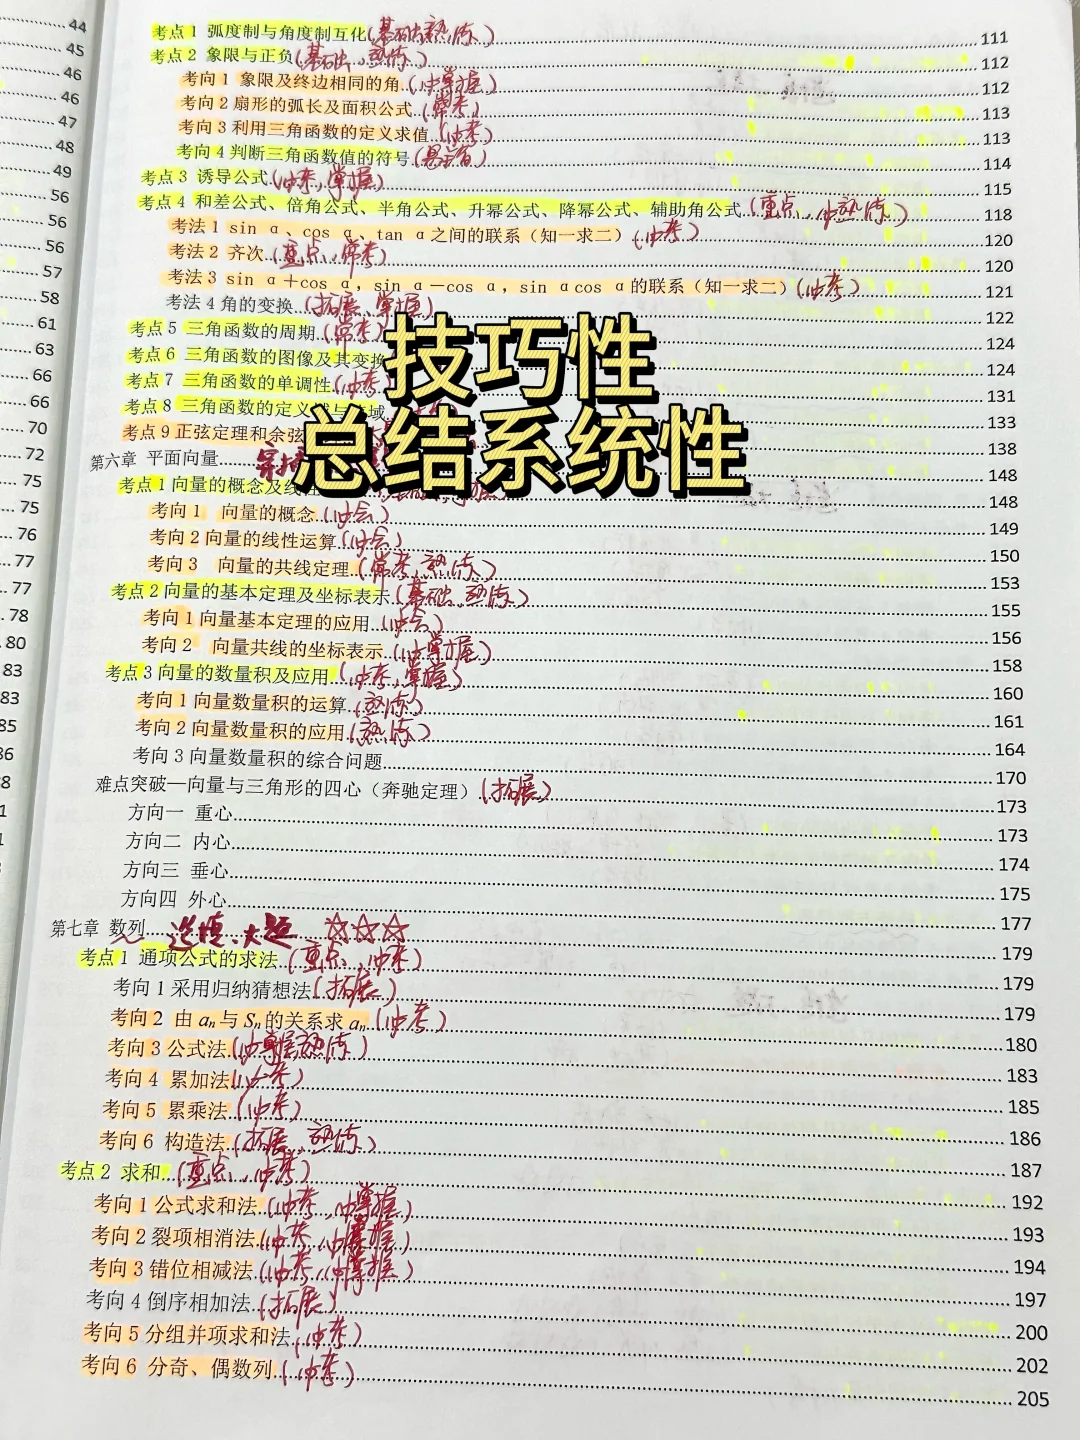 44
45
46
46
47
48
49
56
56
56
57
58
61
63
66
66
70
72
75
75
76
77
77
78
80
83
83
85
86
88
考点1 弧度制与角度制互化(基础,熟练) 111
考点2 象限与正负(基础,熟练) 112
考向1 象限及终边相同的角(必掌握) 112
考向2扇形的弧长及面积公式(常考) 113
考向3利用三角函数的定义求值(必考) 113
考向4判断三角函数值的符号 114
考点3 诱导公式(必考,掌握) 115
考点4 和差公式、倍角公式、半角公式、升幂公式、降幂公式、辅助角公式(重点、必熟练) 118
考法1 sin α、cos α、tan α之间的联系(知一求二)(必考) 120
考法2 齐次(重点,常考) 120
考法3 sin α+cos α,sin α-cos α,sin αcos α的联系(知一求二)(必考) 121
考法4角的变换(拓展,掌握) 122
考点5 三角函数的周期(常考) 124
考点6 三角函数的图像及其变换 124
考点7 三角函数的单调性(必考) 131
考点8 三角函数的定义域与值域 133
考点9正弦定理和余弦 138
技巧性
总结系统性
第六章 平面向量 148
考点1向量的概念及线性 148
考向1 向量的概念(必会) 149
考向2向量的线性运算(必会) 150
考向3 向量的共线定理(常考,熟练) 153
考点2向量的基本定理及坐标表示(基础,熟练) 155
考向1向量基本定理的应用(必会) 156
考向2 向量共线的坐标表示(必掌握) 158
考点3向量的数量积及应用(必考,掌握) 160
考向1向量数量积的运算(熟练) 161
考向2向量数量积的应用(熟练) 164
考向3向量数量积的综合问题 170
难点突破—向量与三角形的四心(奔驰定理)(拓展) 173
方向一 重心 173
方向二 内心 174
方向三 垂心 175
方向四 外心 177
第七章 数列 选填、大题 ☆☆☆ 179
考点1 通项公式的求法(重点,必考) 179
考向1采用归纳猜想法(拓展) 179
考向2 由aₙ与Sₙ的关系求aₙ(必考) 180
考向3公式法(必掌握熟练) 183
考向4 累加法(必考) 185
考向5 累乘法(必考) 186
考向6 构造法(拓展,熟练) 187
考点2 求和(重点,必考) 192
考向1公式求和法(必考,必掌握) 193
考向2裂项相消法(必考,必掌握) 194
考向3错位相减法(必考,必掌握) 197
考向4倒序相加法(拓展) 200
考向5分组并项求和法(必考) 202
考向6 分奇、偶数列(必考) 205